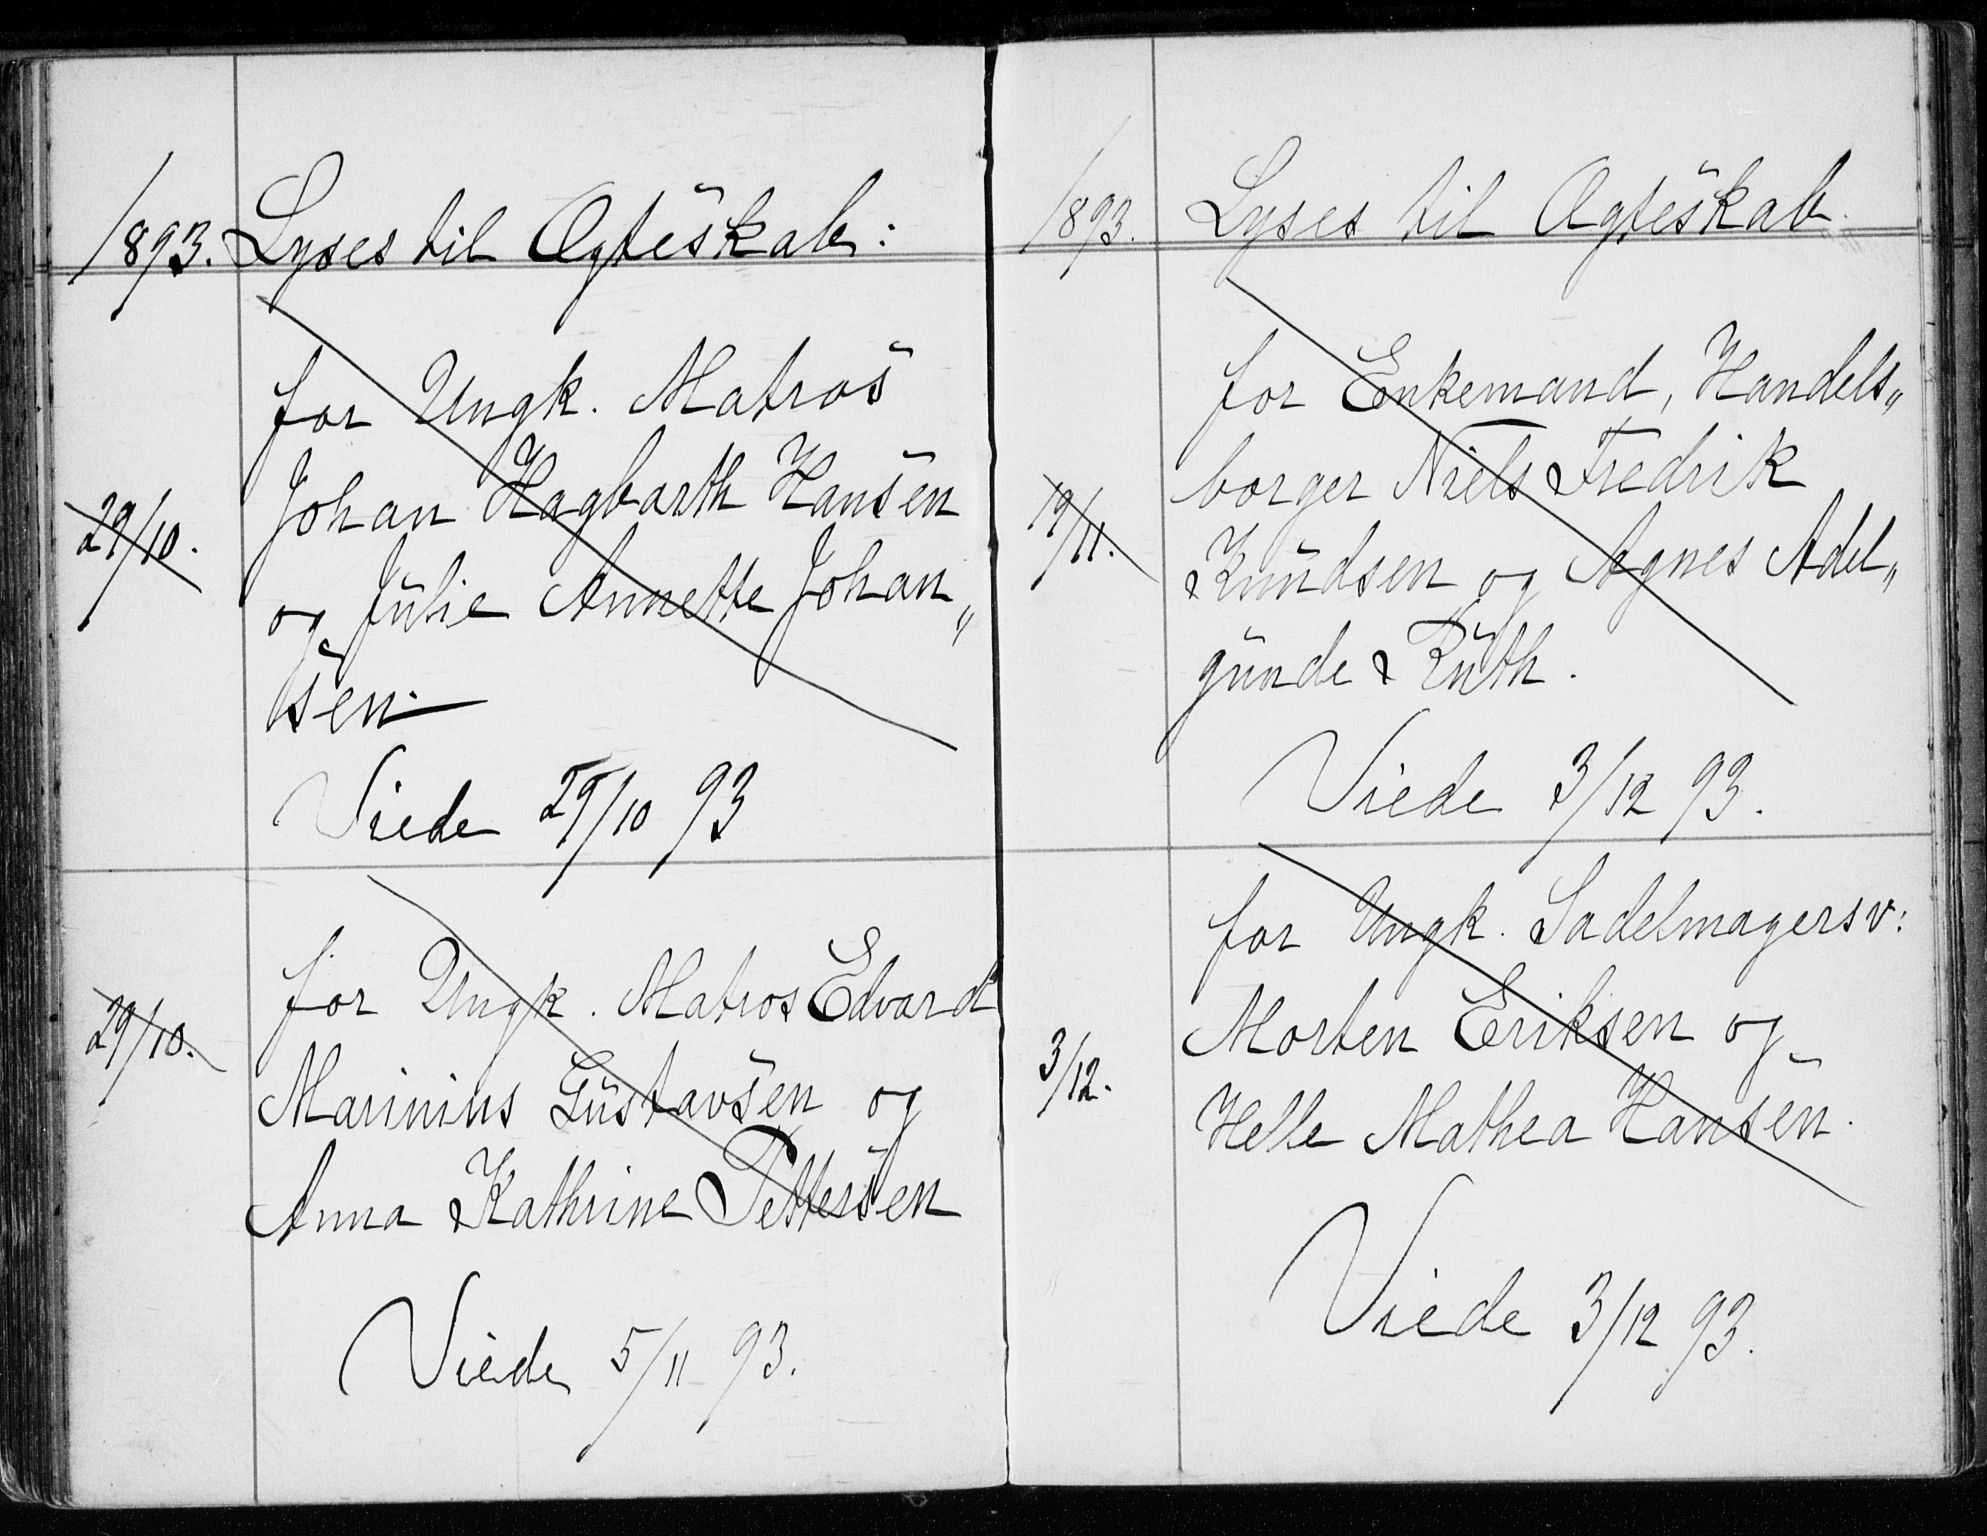 1893. Lyses til Ægteskab:
for Ungk. Matros
Johan Hagbarth Hansen
29/10.
og Julie Annette Johan„
sen.
Viede 29/10 93
for Ungk. Matros Edvard
29/10.
Marinius Gustavsen og
Anna Kathrine Pettersen
Viede 5/11 93.
1893. Lyses til Ægteskab.
for Enkemand, Handels„
borger Niels Fredrik
19/11.
Knudsen og Agnes Adel„
gunde Ruth.
Viede 3/12 93.
for Ungk. Sadelmagersv:
Morten Eriksen og
3/12.
Helle Mathea Hansen.
Viede 3/12 93.